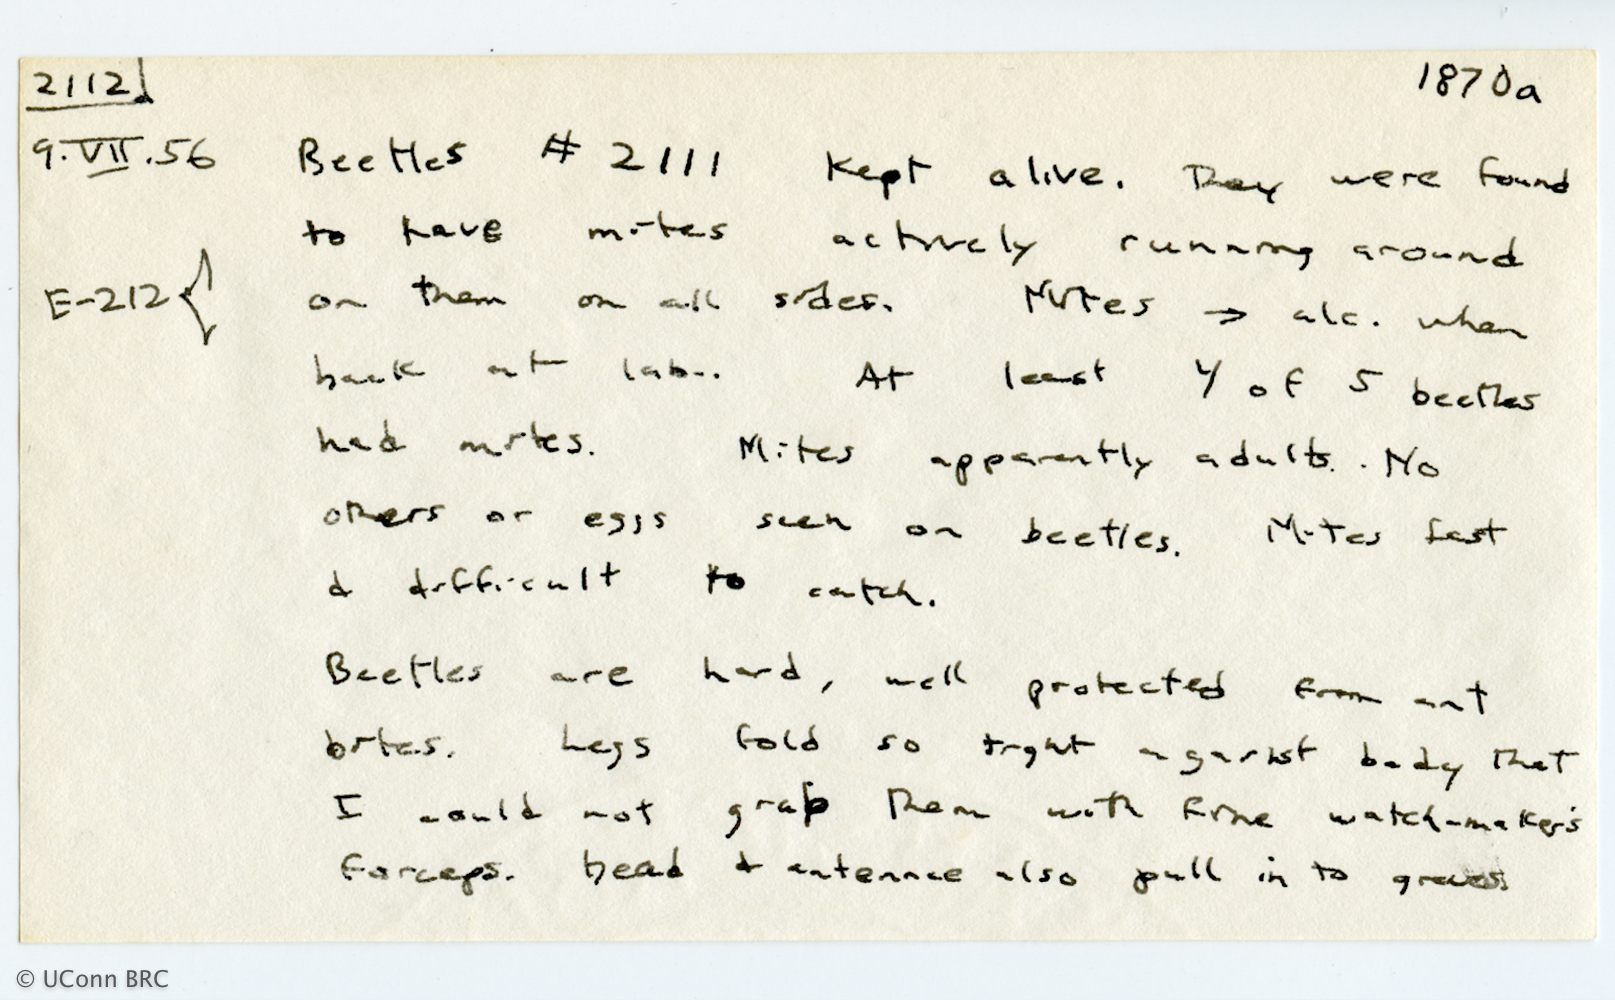 2112
1870a
9.VII.56 Beetles # 2111 kept alive. They were found
to have mites actively running around
E-212 { on them on all sides. Mites → alc. when
back at lab.. At least 4 of 5 beetles
had mites. Mites apparently adults. No
others or eggs seen on beetles. Mites fast
& difficult to catch.
Beetles are hard, well protected from ant
bites. Legs fold so tight against body that
I could not grab them with fine watch-maker's
forceps. Head & antennae also pull in to
© UConn BRC